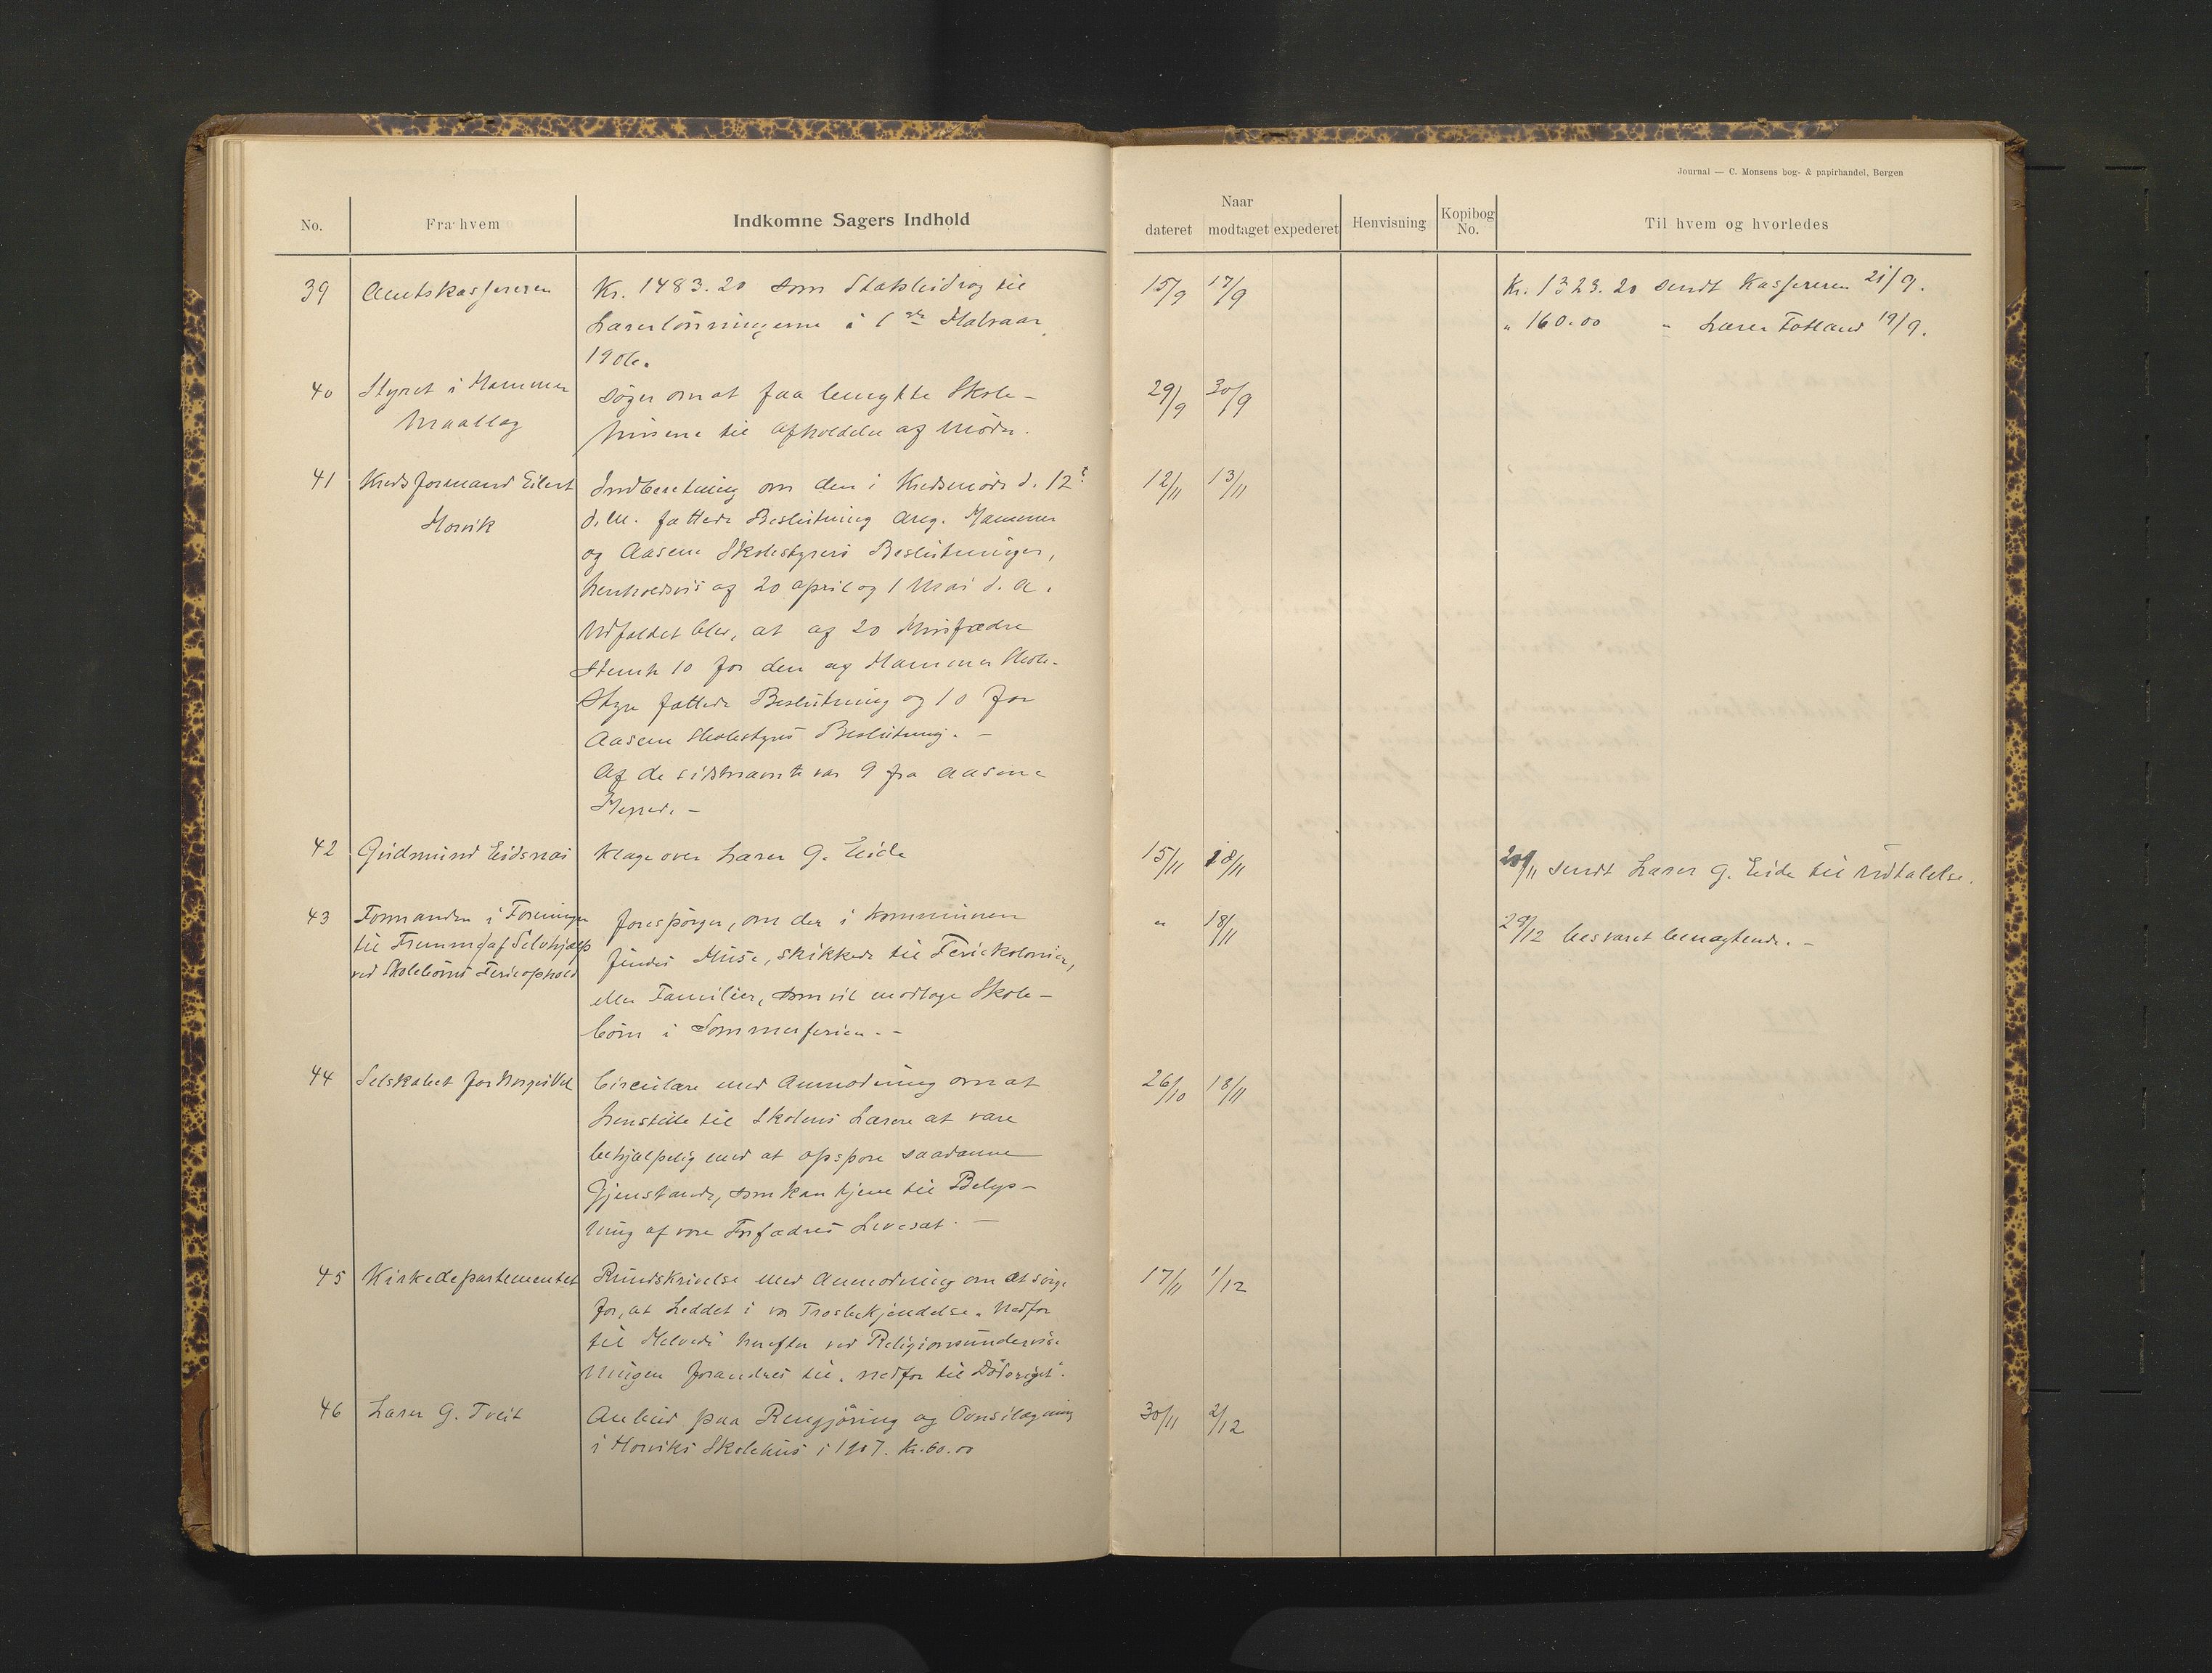 Journal — C. Monsens bog- & papirhandel, Bergen
No.
Fra hvem
Indkomne Sagers Indhold
Naar
dateret
modtaget
expederet
Henvisning
Kopibog No.
Til hvem og hvorledes
39 Amtskassereren Kr. 1483.20 som Statsbidrag til 15/9 17/9 Kr. 1323.20 sendt Kassereren 21/9.
Lærerlönningerne i 1ste Halvaar " 160.00 " Lærer Fotland 19/9.
1906.
40 Styret i Hammer søger om at faa benytte Skole- 29/9 30/9
Maallag husene til Afholdelse af Möder.
41 Kredsformand Eilert Indberetning om den i Kredsmöde d. 12 12/11 13/11
Horvik d. M. fattede Beslutning ang. Hammer
og Aasene Skolestyrers Beslutninger,
henholdsvis af 20 april og 1 Mai d. A.
Udfaldet blev, at af 20 Husfædre
stemte 10 for den af Hammer Skole-
styre fattede Beslutning og 10 for
Aasene Skolestyres Beslutning. -
Af de sidstnævnte var 9 fra Aasene
Herred. -
42 Gudmund Eidsnæs Klage over Lærer G. Eide 15/11 18/11 20/11 sendt Lærer G. Eide til Udtalelse.
43 Formanden i Foreningen forespörger, om der i Kommunen " 18/11 29/12 besvaret benægtende. -
til Fremme af Selvhjælp findes Huse, skikkede til Feriekolonier,
ved Skolebörns Ferieophold eller Familier, som vil modtage Skole-
börn i Sommerferien. -
44 Selskabet for Norges Vel Circulære med Anmodning om at 26/10 18/11
henstille til Skolens Lærere at være
behjælpelig med at opspore saadanne
Gjenstande, som kan tjene til Belys-
ning af vore Forfædres Levesæt. -
45 Kirkedepartementet Rundskrivelse med Anmodning om at sörge 17/11 1/12
for, at Leddet i vor Trosbekjendelse „Nedfor
til Helvede" herefter ved Religionsundervis-
ningen forandres til „nedfor til Dödsriget".
46 Lærer G. Tveit Anbud paa Rengjöring og Ovnsilægning 30/11 2/12
i Horviks Skolehus i 1907. Kr. 60.00